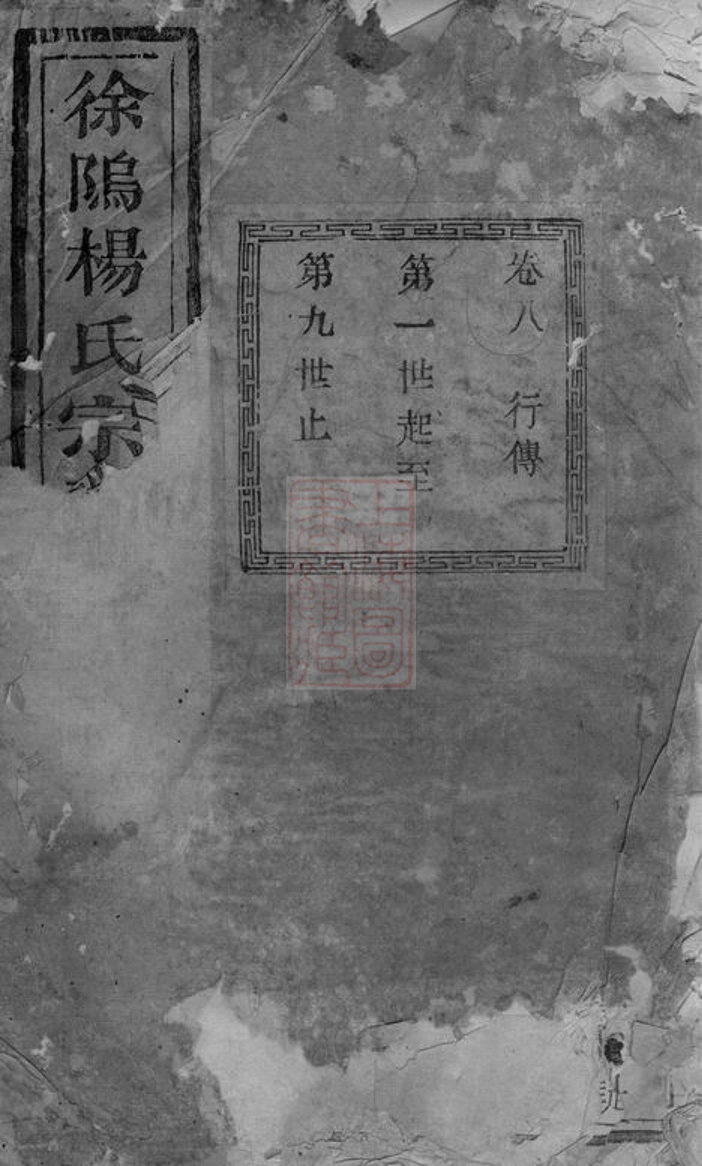 卷八 行傳
第一世起至
第九世止
徐隖楊氏宗